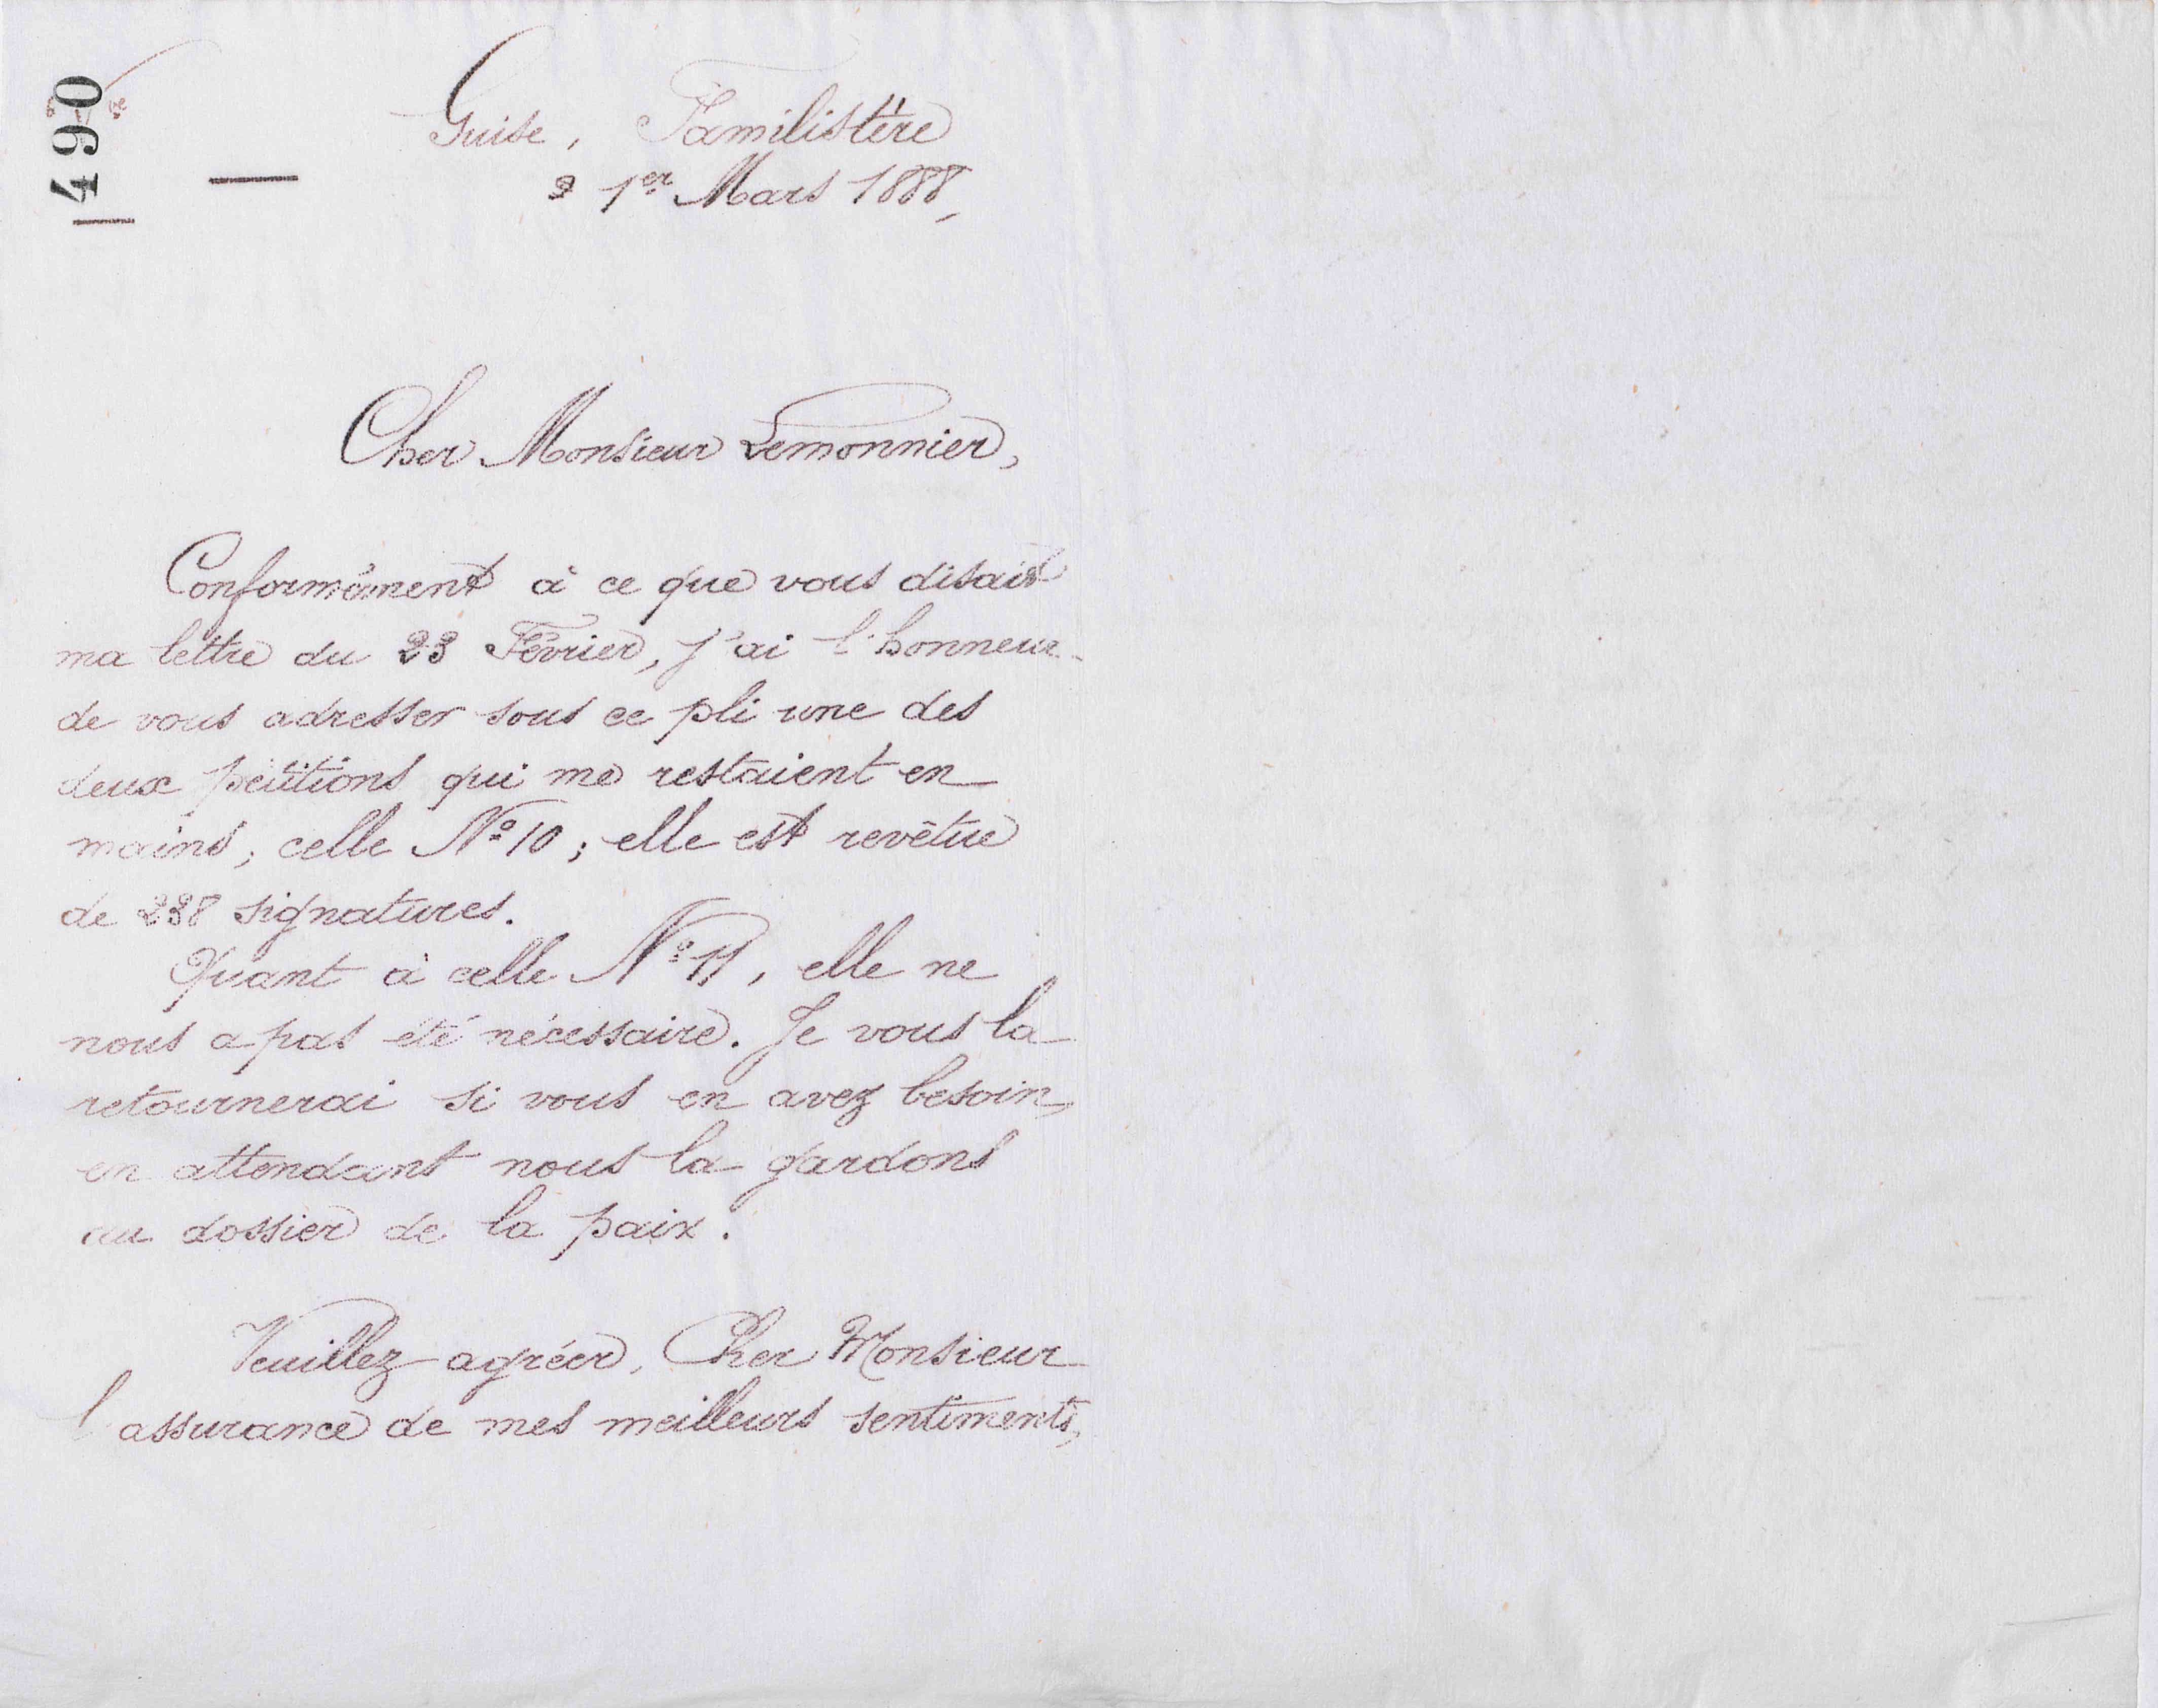 490
Guise, Familistère
1er Mars 1888,
Cher Monsieur Lemonnier,
Conformément à ce que vous disait
ma lettre du 23 Février, j'ai l'honneur
de vous adresser sous ce pli une des
deux pétitions qui me restaient en
mains, celle No 10; elle est revêtue
de 238 signatures.
Quant à celle No 11, elle ne
nous a pas été nécessaire. Je vous la
retournerai si vous en avez besoin,
en attendant nous la gardons
au dossier de la paix.
Veuillez agréer, Cher Monsieur
l'assurance de mes meilleurs sentiments,